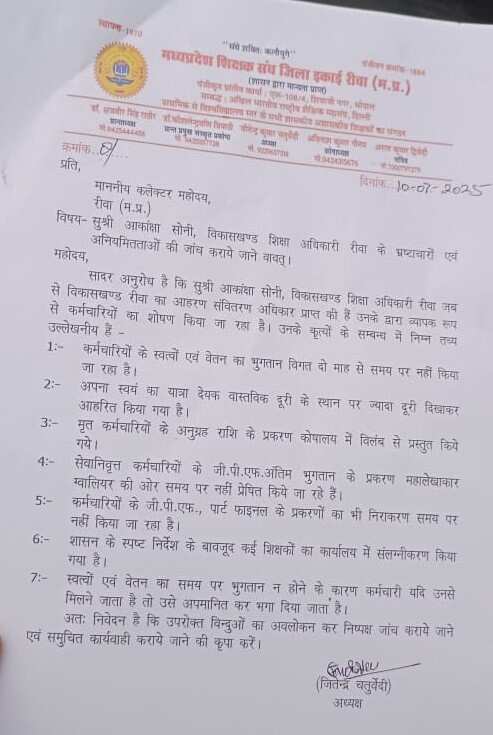 स्थापना-1970
"संघे शक्तिः कलौयुगे"
पंजीयन क्रमांक-1884
मध्यप्रदेश शिक्षक संघ जिला इकाई रीवा (म.प्र.)
(शासन द्वारा मान्यता प्राप्त)
पंजीकृत प्रांतीय कार्या. एफ-108/4, शिवाजी नगर, भोपाल
सम्बद्ध : अखिल भारतीय राष्ट्रीय शैक्षिक महासंघ, दिल्ली
प्राथमिक से विश्वविद्यालय स्तर के सभी शासकीय अशासकीय शिक्षकों का संगठन
क्रमांक..
दिनांक...10-07-2025
प्रति,
माननीय कलेक्टर महोदय,
रीवा (म.प्र.)
विषय- सुश्री आकांक्षा सोनी, विकासखण्ड शिक्षा अधिकारी रीवा के भ्रष्टाचारों एवं
अनियमितताओं की जांच कराये जाने वावत्।
महोदय,
सादर अनुरोध है कि सुश्री आकांक्षा सोनी, विकासखण्ड शिक्षा अधिकारी रीवा जब
से विकासखण्ड रीवा का आहरण संवितरण अधिकार प्राप्त की हैं उनके द्वारा व्यापक रूप
से कर्मचारियों का शोषण किया जा रहा है। उनके कृत्यों के सम्बन्ध में निम्न तथ्य
उल्लेखनीय हैं -
1:- कर्मचारियों के स्वत्वों एवं वेतन का भुगतान विगत दो माह से समय पर नहीं किया
जा रहा है।
2:- अपना स्वयं का यात्रा देयक वास्तविक दूरी के स्थान पर ज्यादा दूरी दिखाकर
आहरित किया गया है।
3:- मृत कर्मचारियों के अनुग्रह राशि के प्रकरण कोषालय में विलंब से प्रस्तुत किये
गये।
4:- सेवानिवृत्त कर्मचारियों के जी.पी.एफ.अंतिम भुगतान के प्रकरण महालेखाकार
ग्वालियर की ओर समय पर नहीं प्रेषित किये जा रहे हैं।
5:- कर्मचारियों के जी.पी.एफ., पार्ट फाइनल के प्रकरणों का भी निराकरण समय पर
नहीं किया जा रहा है।
6:- शासन के स्पष्ट निर्देश के बावजूद कई शिक्षकों का कार्यालय में संलग्नीकरण किया
गया है।
7:- स्वत्वों एवं वेतन का समय पर भुगतान न होने के कारण कर्मचारी यदि उनसे
मिलने जाता है तो उसे अपमानित कर भगा दिया जाता है।
अतः निवेदन है कि उपरोक्त विन्दुओं का अवलोकन कर निष्पक्ष जांच कराये जाने
एवं समुचित कार्यवाही कराये जाने की कृपा करें।
(जितेन्द्र चतुर्वेदी)
अध्यक्ष